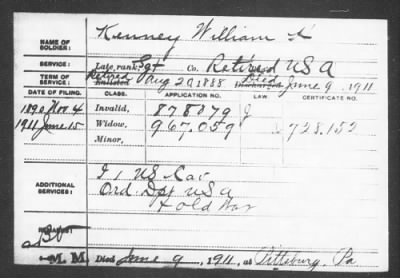 NAME OF SOLDIER: Kenney William
SERVICE: Late rank, Sgt Co. Retired USA
TERM OF SERVICE: Enlisted Retired Aug 20, 1888 Discharged Died June 9, 1911
DATE OF FILING. CLASS. APPLICATION NO. LAW. CERTIFICATE NO.
1890 Nov 4 Invalid, 878079 J
1911 June 15 Widow, 967.059 728.152
Minor,
ADDITIONAL SERVICES: I, 1 US Cav
Ord. Dpt USA
+ old War
REMARKS:
M.M. Died June 9, 1911, at Pittsburg, Pa